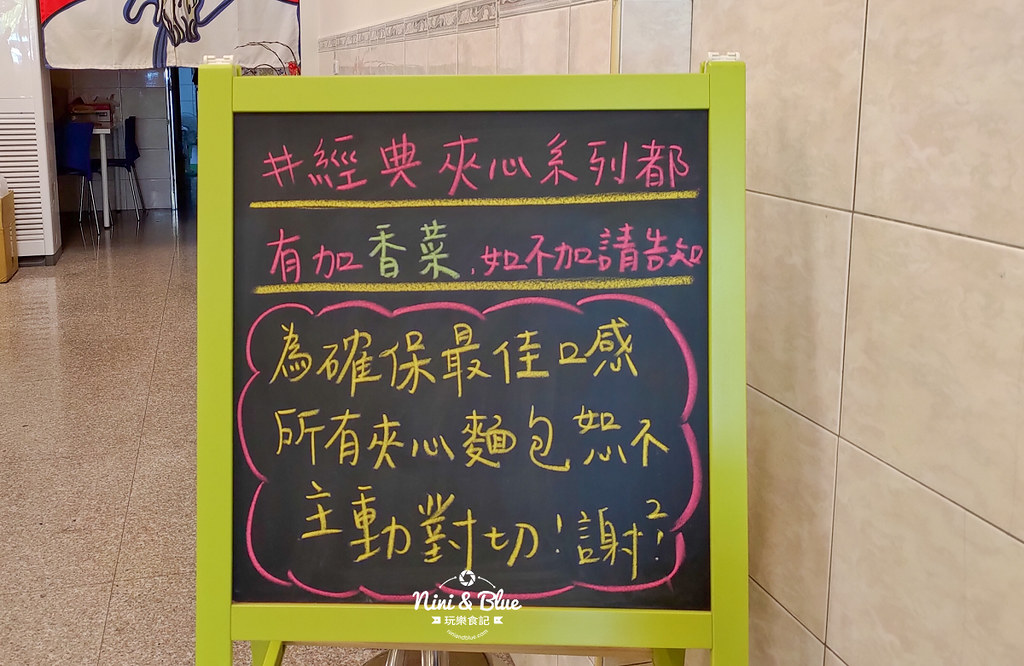 #經典夾心系列都
有加香菜,如不加請告知
為確保最佳口感
所有夾心麵包恕不
主動對切!謝²!
Nini & Blue
玩樂食記
niniandblue.com